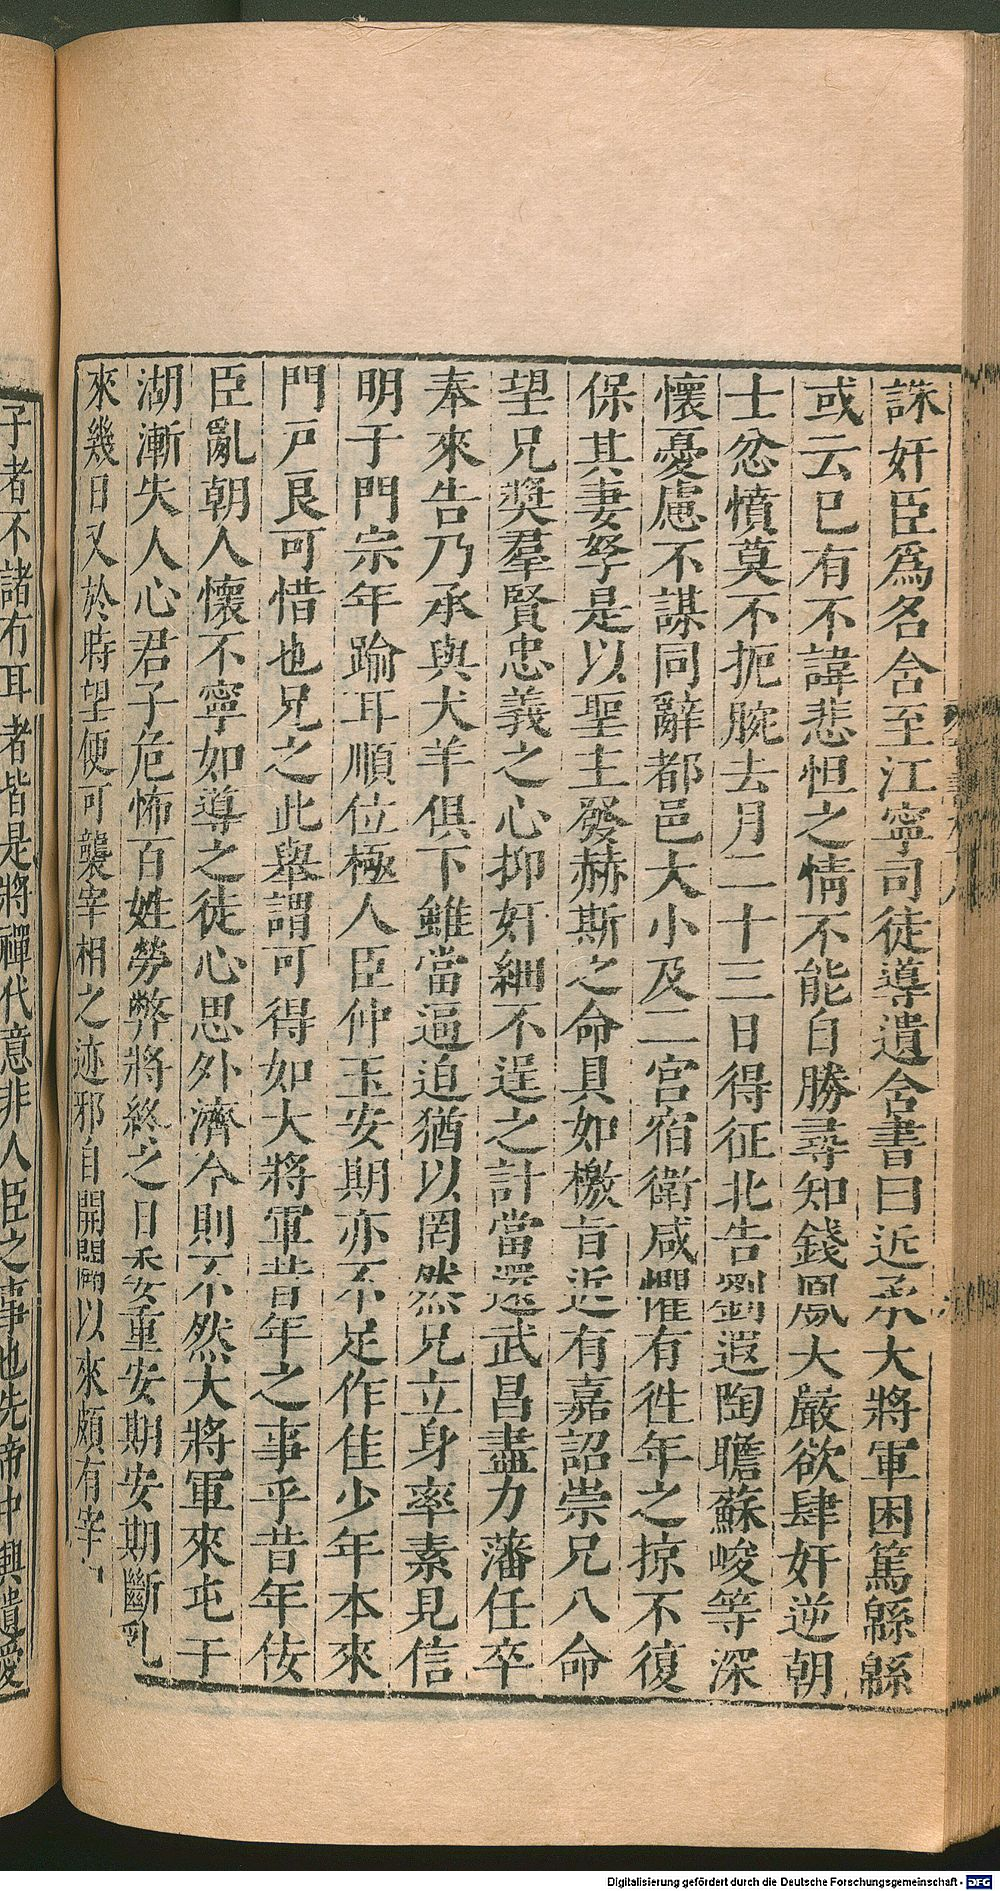 誅奸臣爲名含至江寧司徒導遺含書曰近承大將軍困篤緜緜
或云已有不諱悲怛之情不能自勝尋知錢鳳大嚴欲肆奸逆朝
士忿憤莫不扼腕去月二十三日得征北告劉遐陶瞻蘇峻等深
懷憂慮不謀同辭都邑大小及二宮宿衛咸懼有徃年之掠不復
保其妻孥是以聖主發赫斯之命具如檄旨近有嘉詔崇兄八命
望兄奬羣賢忠義之心抑奸細不逞之計當還武昌盡力藩任卒
奉來告乃承與犬羊俱下雖當逼迫猶以罔然兄立身率素見信
明于門宗年踰耳順位極人臣仲玉安期亦不足作佳少年本來
門戸良可惜也兄之此舉謂可得如大將軍昔年之事乎昔年佞
臣亂朝人懷不寧如導之徒心思外濟今則不然大將軍來屯于
湖漸失人心君子危怖百姓勞弊將終之日委重安期安期斷乳
來幾日又於時望便可襲宰相之迹邪自開闢以來頗有宰
子者不諸有耳者皆是將禪代意非人臣之事也先帝中興遺愛
Digitalisierung gefördert durch die Deutsche Forschungsgemeinschaft - DFG